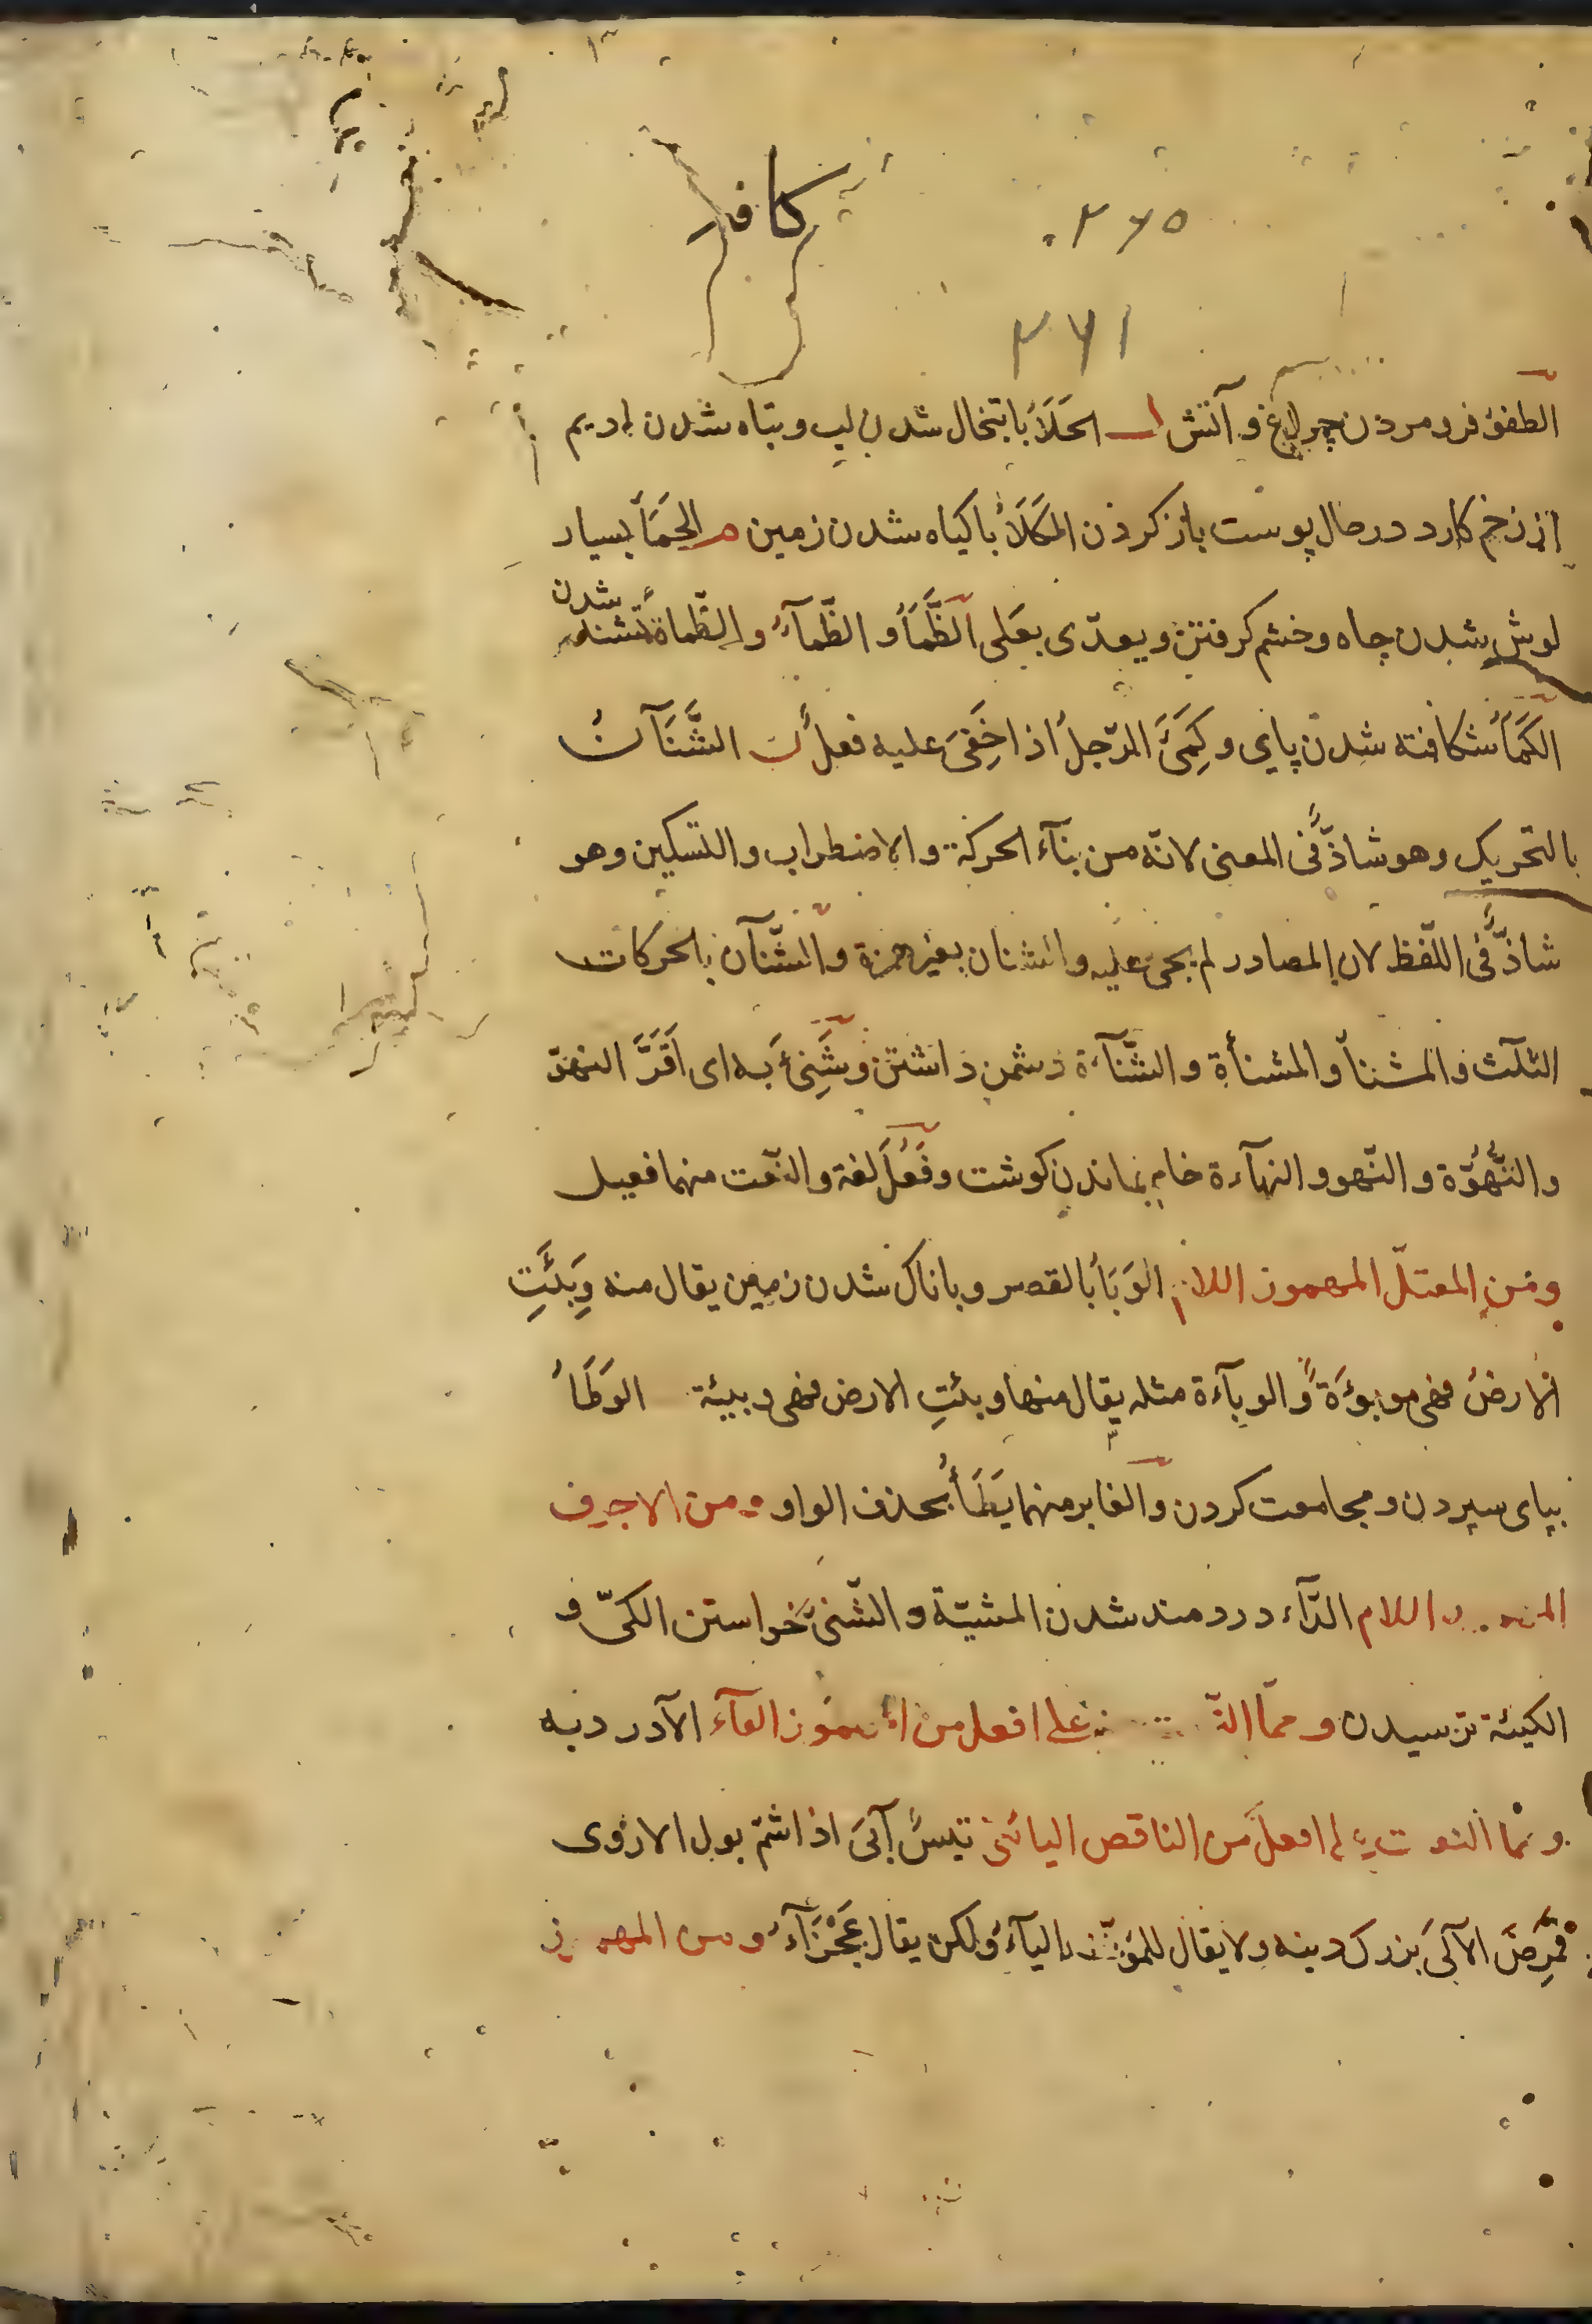 ۲۶۵
۲۶۱
الطفوْ فرو مردن چراغ و آتش ا الحَلَأُ باتبخال شدن لب و تباه شدن ادیم
از زخم کارد در حال پوست باز کردن الکَلَأُ باکیاه شدن زمین م الحَمَأُ بسیار
لوش شدن چاه و خشم کرفتن و یعدّی بعَلی الظَّمَأُ و الظّمآءُ و الظّمأة تشنه شدن
الکَمَأُ شکافته شدن پای و کَمِئَ الرّجلُ اذا خَفِیَ علیه فعلُ ن الشَّنَآنُ
بالتحریک وهو شاذٌّ فی المعنی لانّه من بنآء الحرکة والاضطراب والتسکین وهو
شاذٌّ فی اللّفظ لان المصادر لم یجئ علیه والشنان بغیر همزة والشّنآن بالحرکات
الثلث والمشنأ والمشنأة والشّنآءة دشمن داشتن وشَنِئَ به ای اَقَرَّ النهوّ
والنُّهُوّة والنّهو والنهآءة خام بماندن کوشت وفَعُلَ لغة والنّعت منهما فعیل
ومن المعتلّ المهموز اللام الوَبَأُ بالقصر وباناک شدن زمین یقال منه وَبِئَتِ
الارضُ فهی موبوءَةٌ والوبآءة مثله یقال منها وبئتِ الارض فهی وبیئة الوَطَأُ
بپای سپردن و مجامعت کردن والغابر منهما یَطَأُ بحذف الواو ومن الاجوف
اللام الدّآء دردمند شدن المشیّة والشّیئ خواستن الکیّ و
الکیئة ترسیدن وممّا علی افعل من الفآء الآدر دبه
وممّا النعوت افعل من الناقص الیائی تیسٌ آبَی اذا شمّ بول الاروی
فمَرِضَ الآلَی بزرک دنبه ولا یقال للمؤنّث الیآءُ ولکن یقال عَجْزَآءُ ومن المهموز